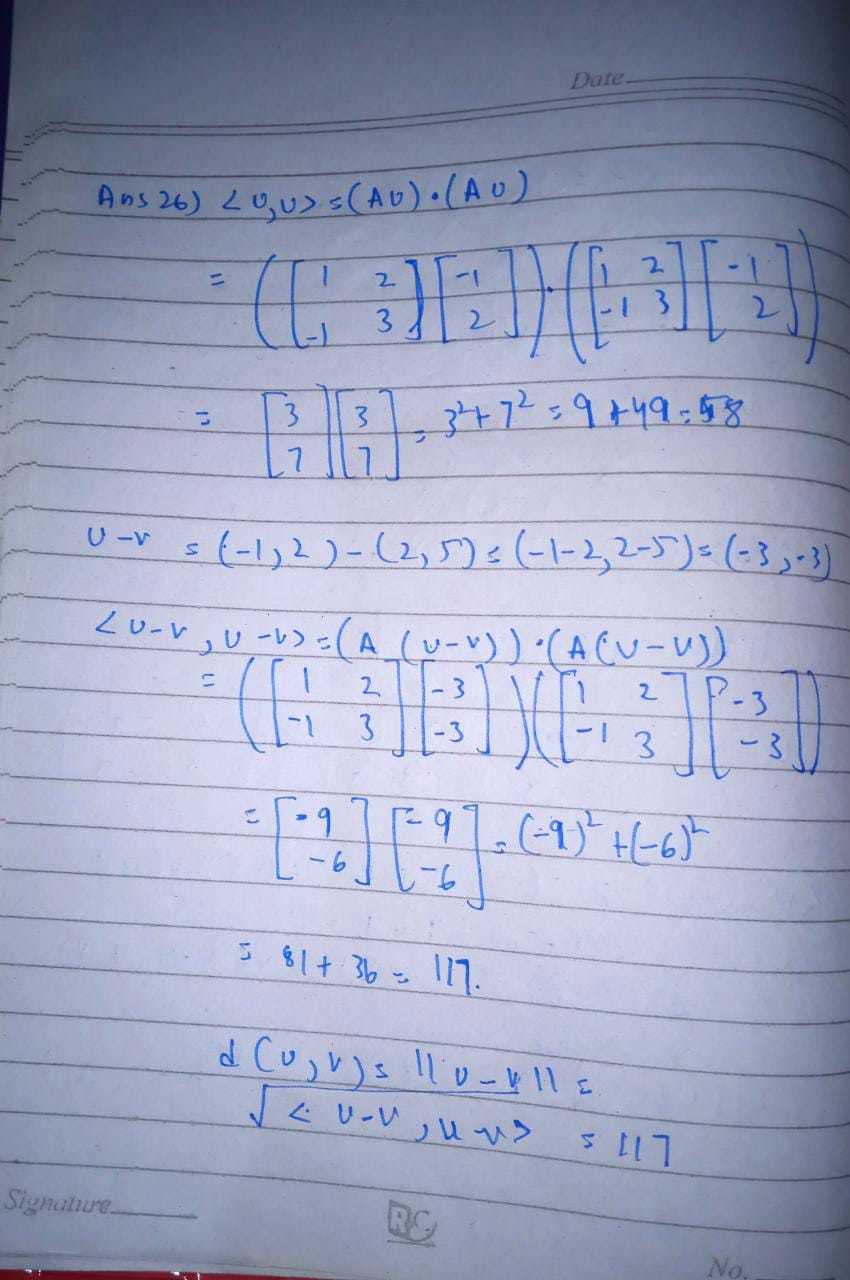 Date
Ans 26) <u,u> = (Au)·(Au)
= ([1 2 -1 3][-1 2])·([1 2 -1 3][-1 2])
= [3 7][3 7] = 3²+7² = 9+49 = 58
u-v = (-1,2)-(2,5) = (-1-2,2-5) = (-3,-3)
<u-v, u-v> = (A (u-v))·(A(u-v))
= ([1 2 -1 3][-3 -3])([1 2 -1 3][-3 -3])
= [-9 -6][-9 -6] = (-9)²+(-6)²
= 81+36 = 117.
d(u,v) = ||u-v|| =
√<u-v, u-v> = 117
Signature
RC
No.